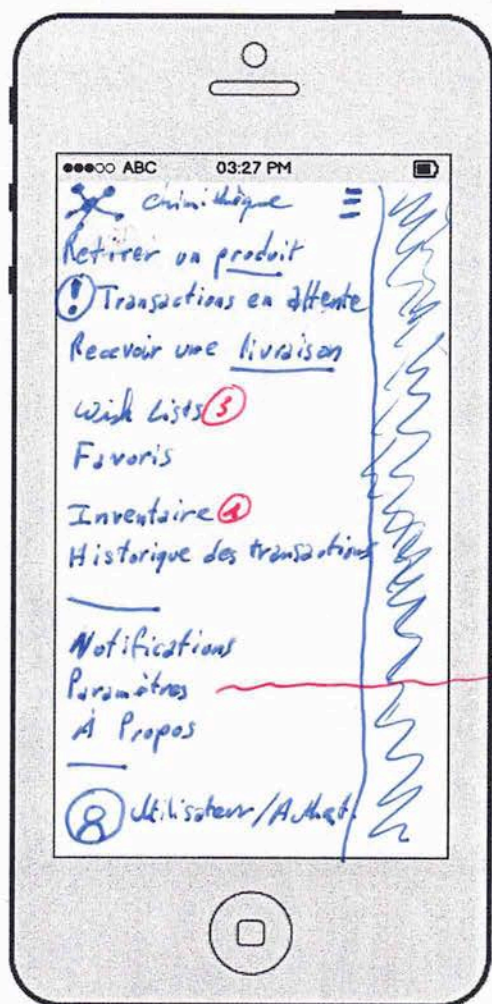 ABC 03:27 PM
chimithèque
Retirer un produit
! Transactions en attente
Recevoir une livraison
Wish Lists 3
Favoris
Inventaire 1
Historique des transactions
Notifications
Paramètres
À Propos
Utilisateur/Authet.